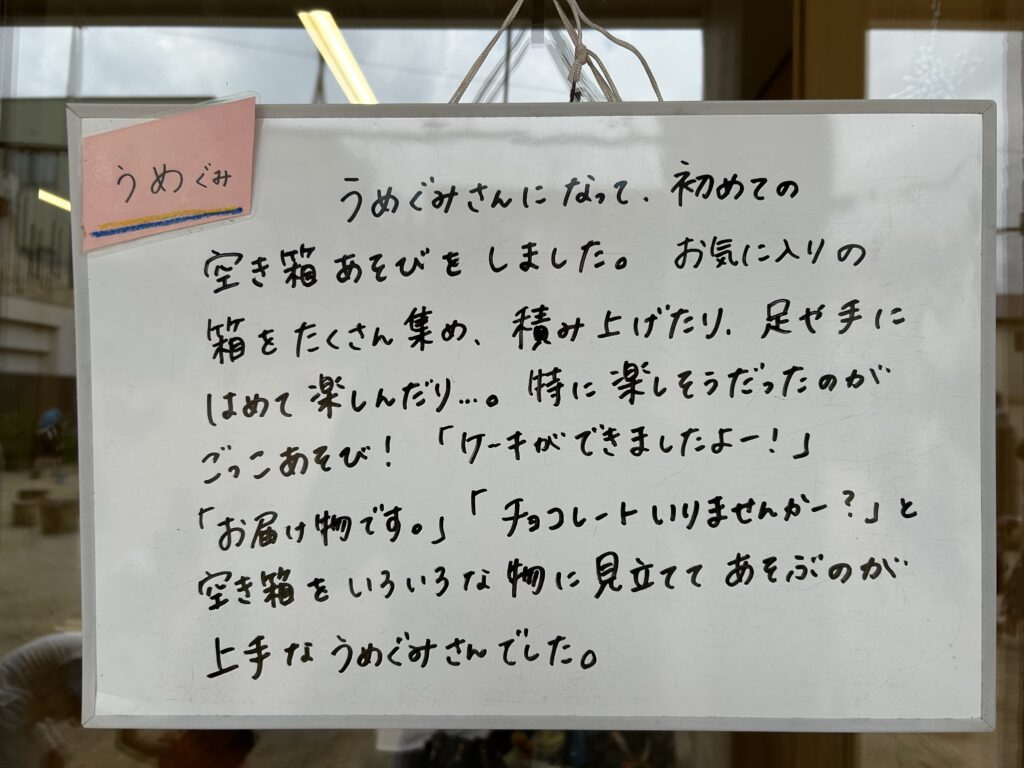 うめぐみ
うめぐみさんになって、初めての
空き箱あそびをしました。お気に入りの
箱をたくさん集め、積み上げたり、足や手に
はめて楽しんだり…。特に楽しそうだったのが
ごっこあそび!「ケーキができましたよー!」
「お届け物です。」「チョコレートいりませんかー?」と
空き箱をいろいろな物に見立ててあそぶのが
上手なうめぐみさんでした。